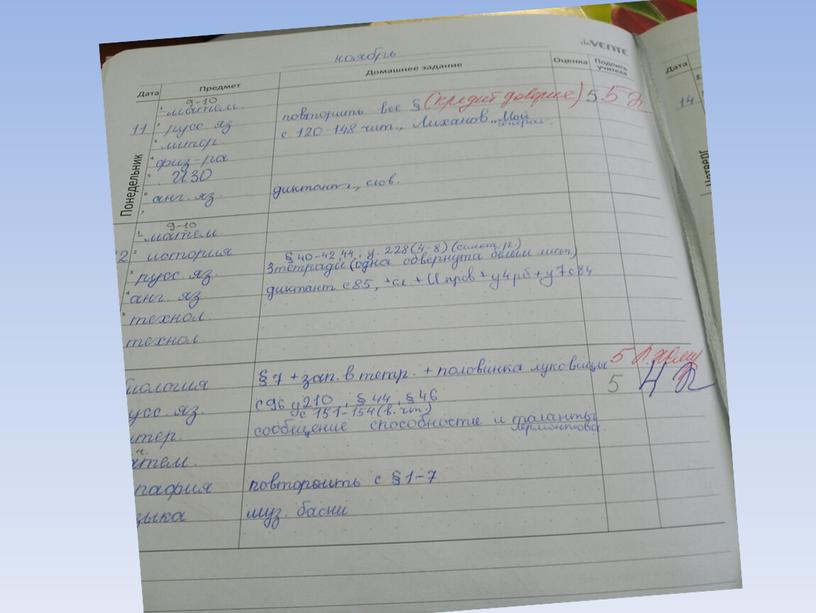 deVENTE
ноябрь
Дата Предмет Домашнее задание Оценка Подпись учителя
Дата
9-10
матем.
11 русс. яз. повторить все § (кредит доверия) 5 5
14
литер. с 120-148 чит., Лиханов „Мой генерал".
физ-ра
Понедельник
ИЗО
англ. яз. диктант, слов.
Четверг
9-10
матем.
2 история
§ 40-42,44; у. 228 (4-8) (синт. р.)
русс. яз. 3 тетради (одна обвернута белым лист)
анг. яз. диктант с 85, +сл + Ипров + у4 рб + у7 с 84
технол.
технол
биология § 7 + зап. в тетр. + половинка луковицы 5
усс. яз. с 96 у 210; § 44, § 46 5 4
с 151-154 (в. чт.)
тер. сообщение способности и таланты Лермонтова
атем.
графия повторить с § 1-7
зыка муз. басни